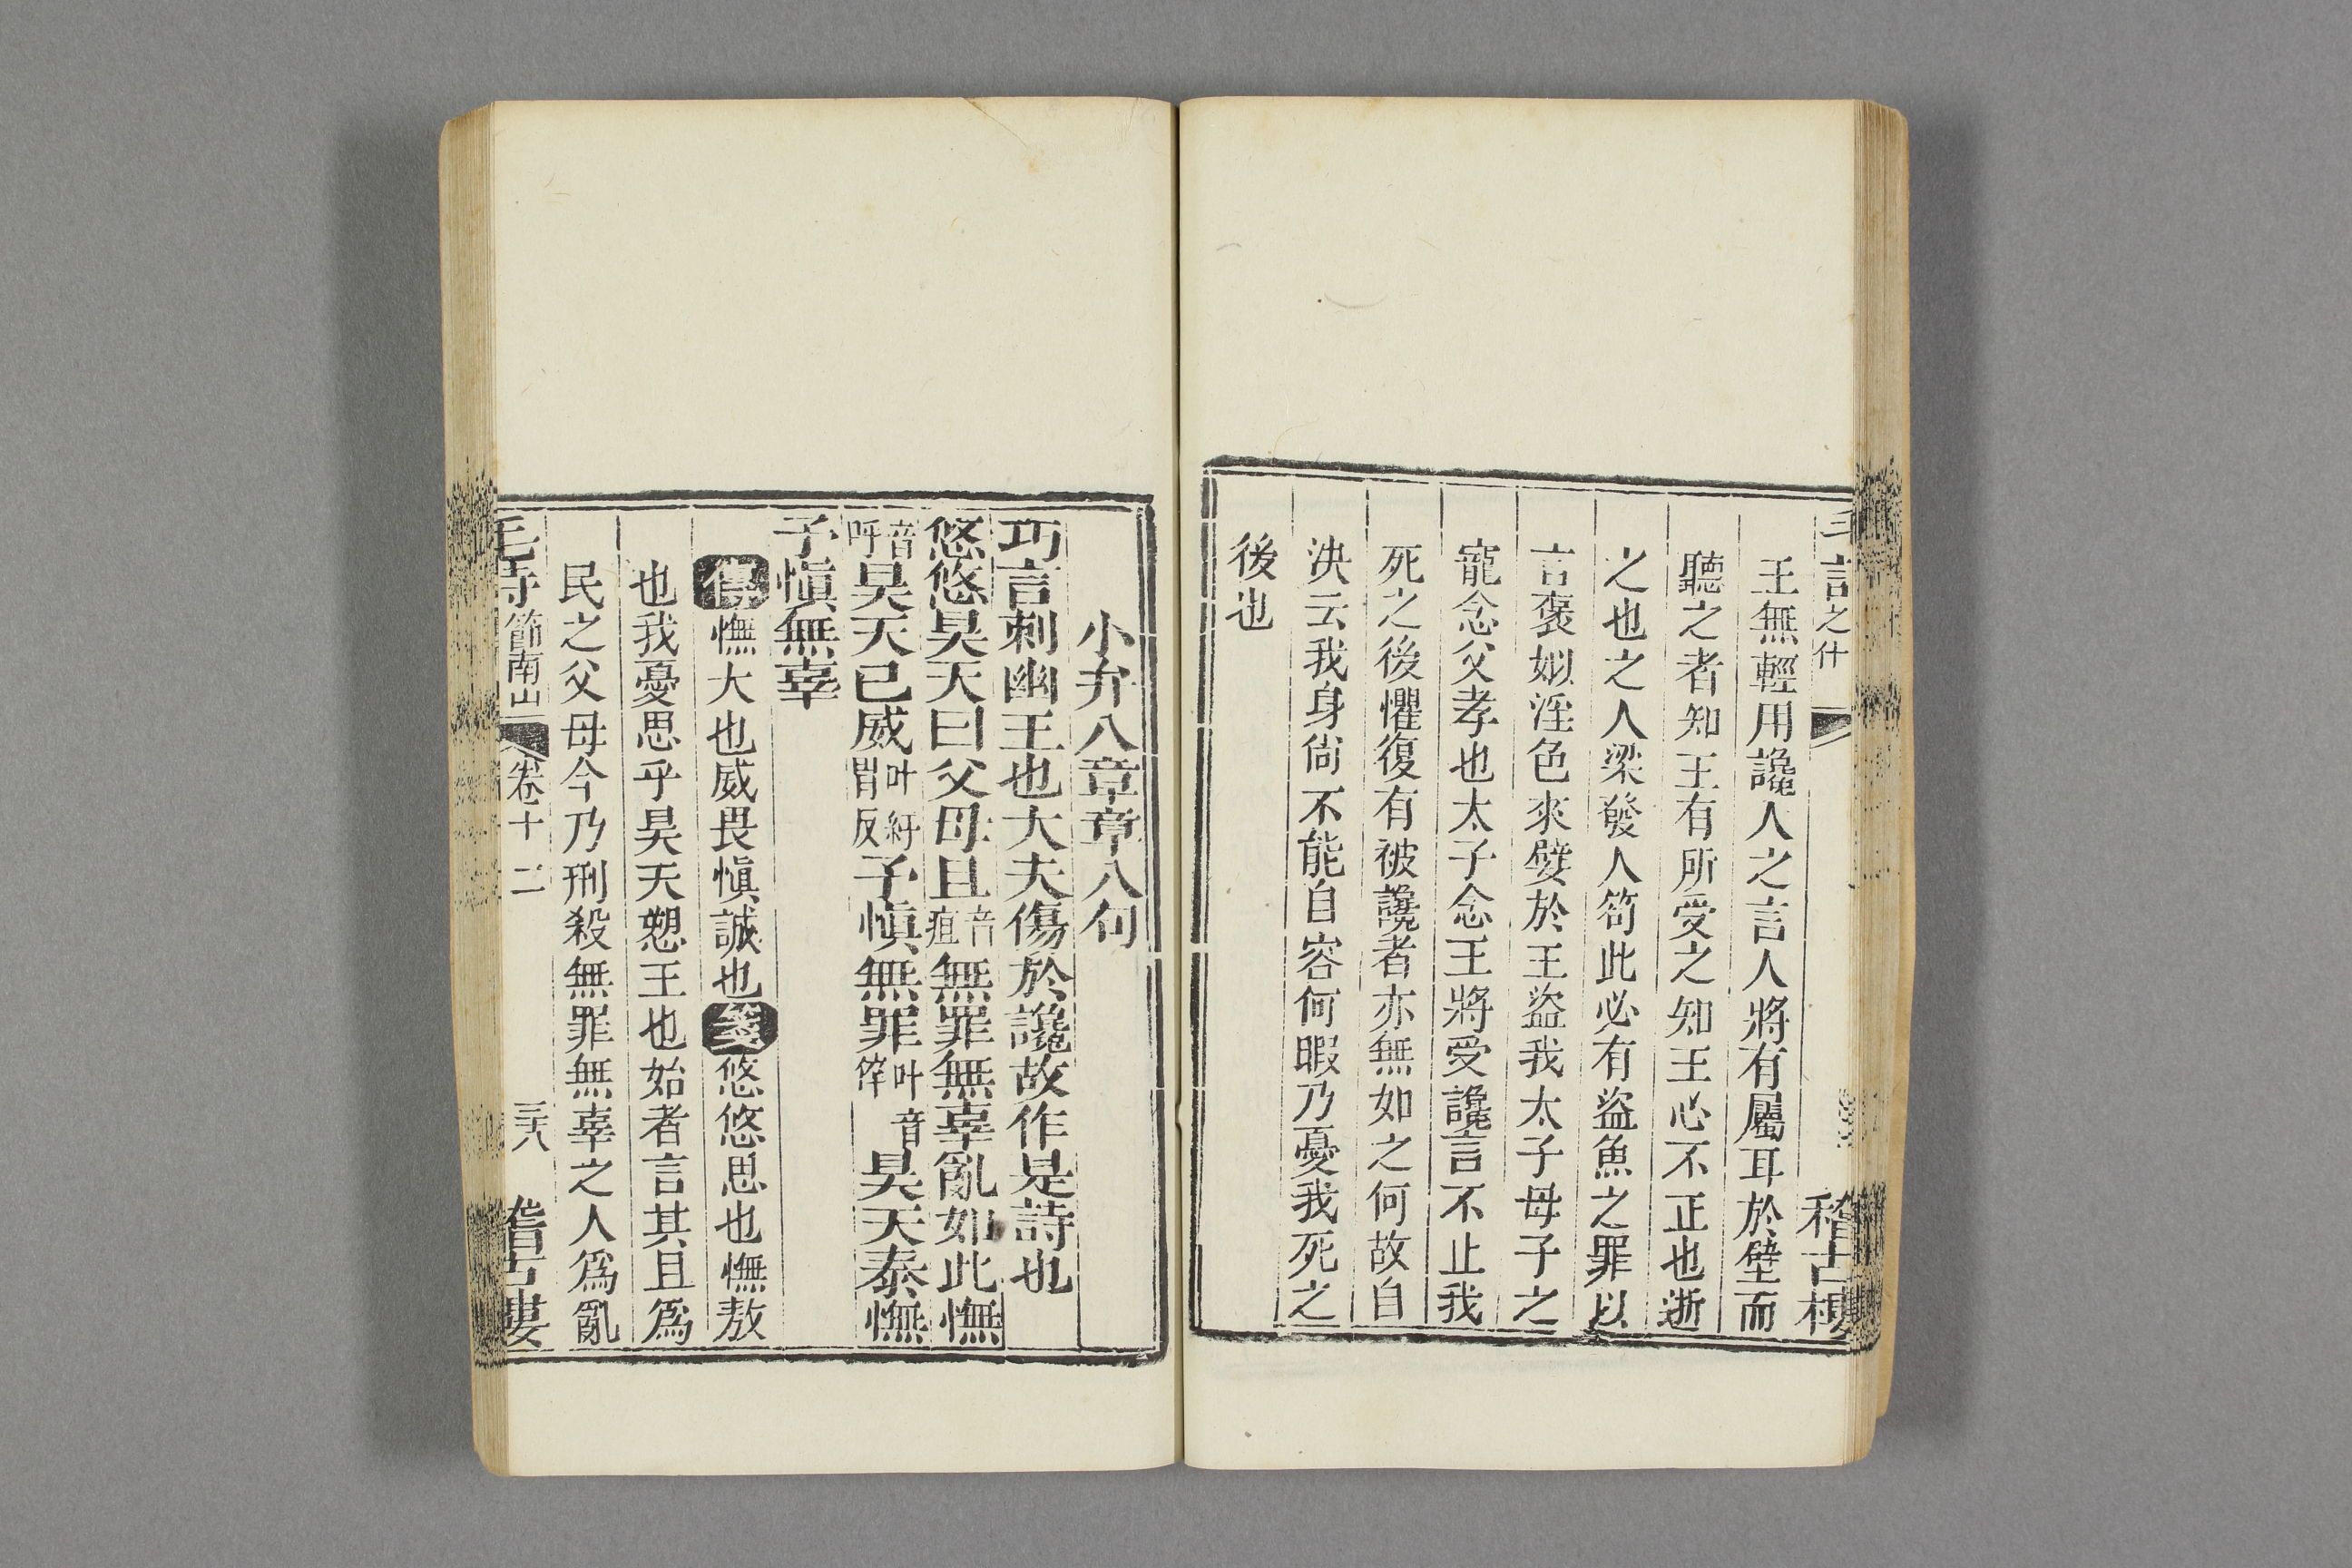 之什
稽古樓
王無輕用讒人之言人將有屬耳於壁而
聽之者知王有所受之知王心不正也逝
之也之人梁發人笱此必有盜魚之罪以
言褒姒淫色來嬖於王盜我太子母子之
寵念父孝也太子念王將受讒言不止我
死之後懼復有被讒者亦無如之何故自
決云我身尙不能自容何暇乃憂我死之
後也
小弁八章章八句
巧言刺幽王也大夫傷於讒故作是詩也
悠悠昊天曰父母且音疽無罪無辜亂如此憮
音呼昊天已威叶紆胃反予愼無罪叶音倅昊天泰憮
予愼無辜
傳憮大也威畏愼誠也箋悠悠思也憮敖
也我憂思乎昊天愬王也始者言其且爲
民之父母今乃刑殺無罪無辜之人爲亂
毛詩節南山 卷十二 三十八 稽古樓